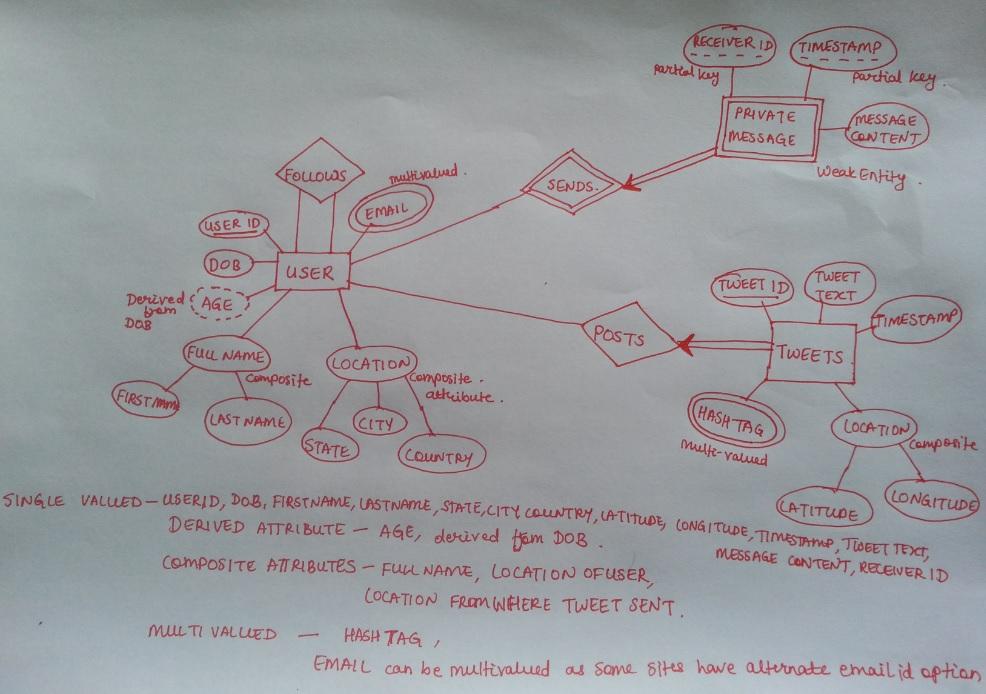 RECEIVER ID
TIMESTAMP
partial key
partial key.
PRIVATE
MESSAGE
MESSAGE
CONTENT
Weak Entity.
FOLLOWS
SENDS.
multivalued.
EMAIL
USER ID
DOB
USER
Derived
from
DOB
AGE
TWEET ID
TWEET
TEXT
TIMESTAMP
POSTS
TWEETS
FULL NAME
composite
FIRSTNAME
LASTNAME
LOCATION
composite.
attribute.
STATE
CITY
COUNTRY
HASH TAG
multi-valued
LOCATION
composite
LATITUDE
LONGITUDE
SINGLE VALUED - USERID, DOB, FIRSTNAME, LASTNAME, STATE, CITY COUNTRY, LATITUDE, LONGITUDE, TIMESTAMP, TWEET TEXT,
MESSAGE CONTENT, RECEIVER ID
DERIVED ATTRIBUTE - AGE, derived from DOB.
COMPOSITE ATTRIBUTES - FULL NAME, LOCATION OF USER,
LOCATION FROM WHERE TWEET SENT.
MULTI VALUED - HASH TAG,
EMAIL can be multivalued as some sites have alternate email id option